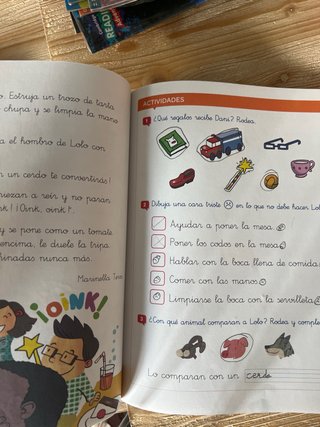 READ
o. Estruja un trozo de tarta
chupa y se limpia la mano
a el hombro de Lolo con
n un cerdo te convertiras!
piezan a reír y no paran
k! ¡Oink, oink!.
y se pone como un tomate.
encima, le duele la tripa.
hinadas nunca más.
Marinella Terzi
¡OINK!
ACTIVIDADES
1 ¿Qué regalos recibe Dani? Rodea.
2 Dibuja una cara triste en lo que no debe hacer Lolo
Ayudar a poner la mesa.
Poner los codos en la mesa.
Hablar con la boca llena de comida
Comer con las manos.
Limpiarse la boca con la servilleta.
3 ¿Con qué animal comparan a Lolo? Rodea y comple
Lo comparan con un cerdo